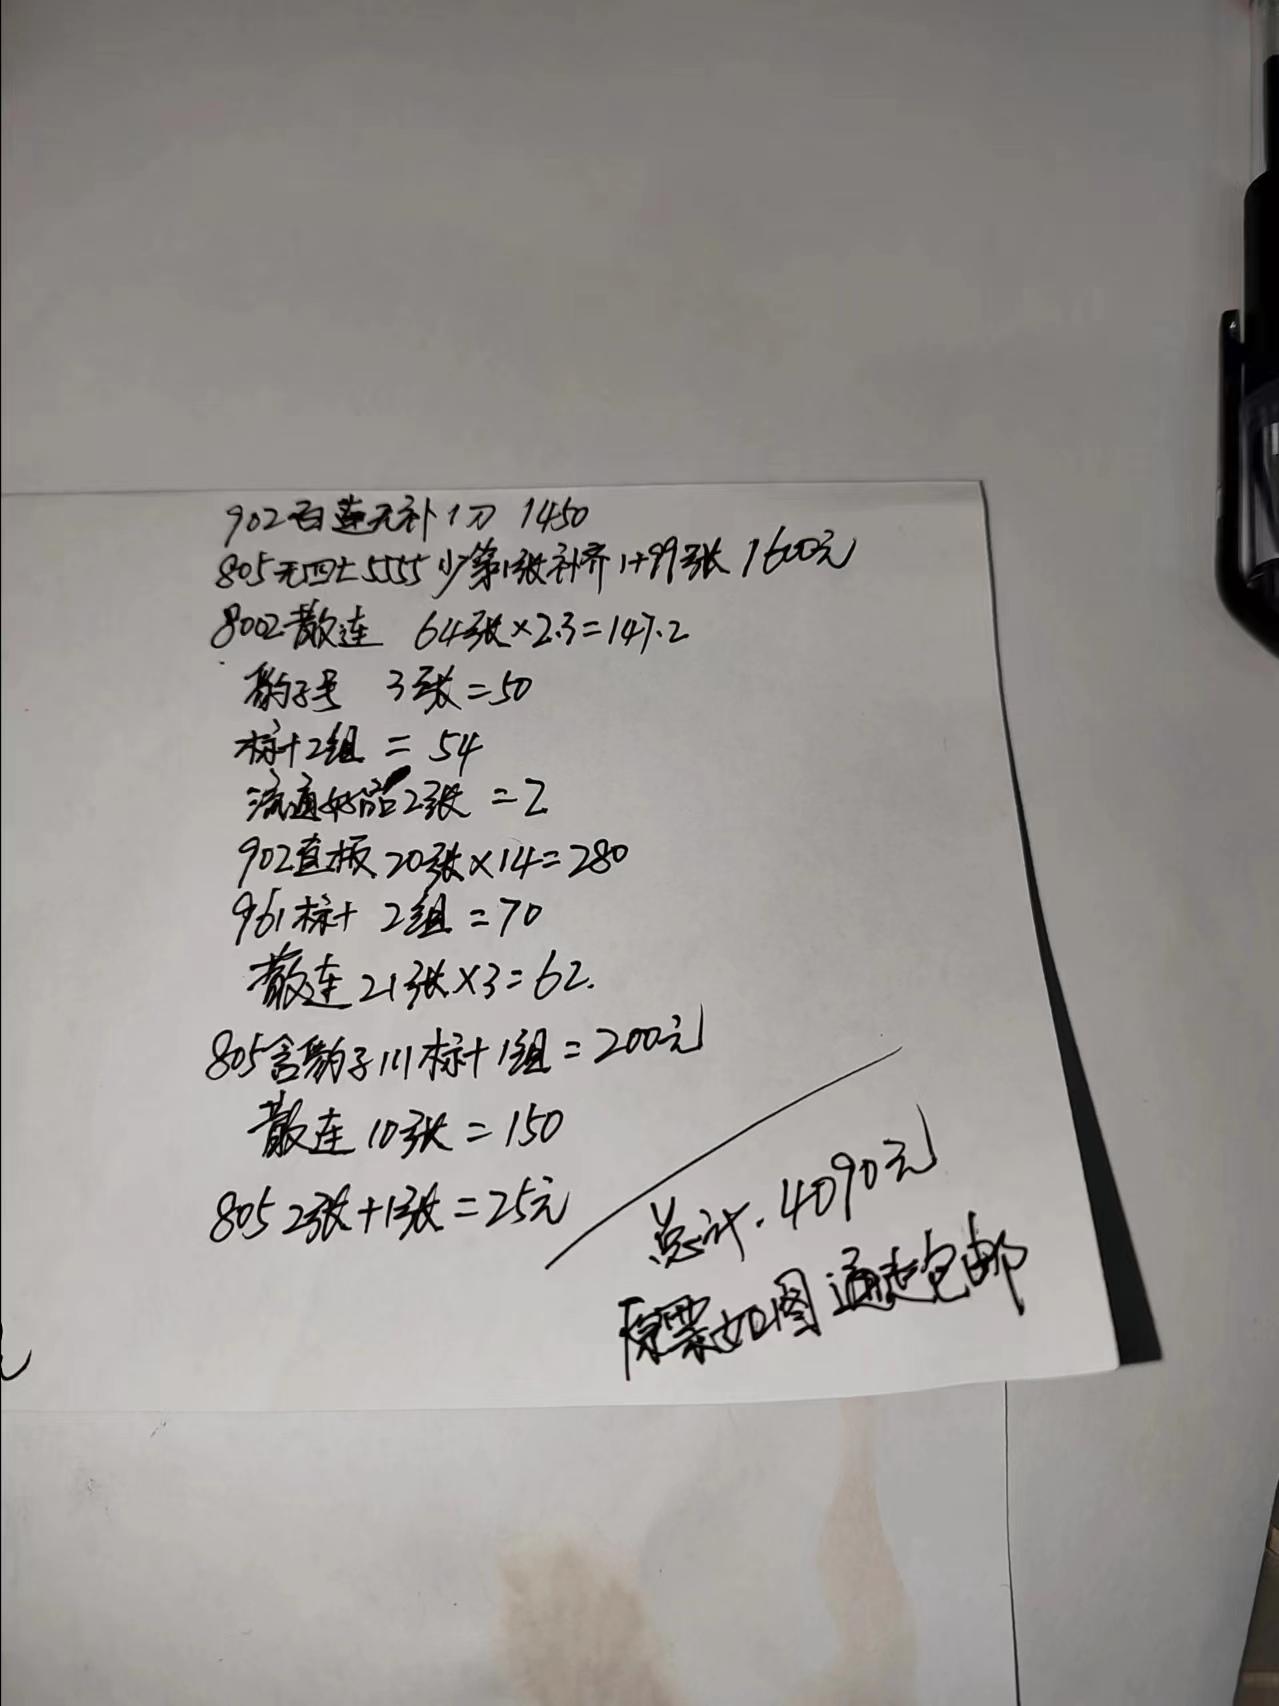 902百连无补1刀 1450
805无四七5555少第1张补齐1+99张 1600元
8002散连 64张×2.3=147.2
豹子号 3张=50
标十2组 = 54
流通好品2张 =2
902直板20张×14=280
961标十 2组=70
散连21张×3=62.
805含豹子111标十1组=200元
散连10张=150
805 2张+1张=25元
总计.4090元
原票如图 通走包邮